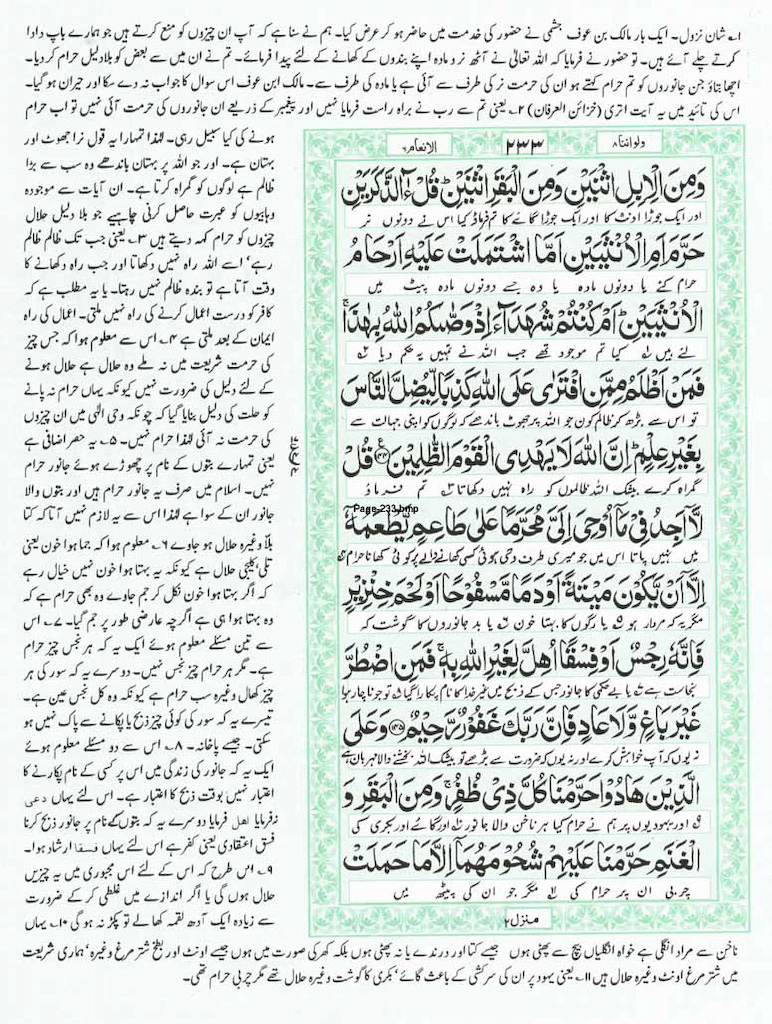 ۱؎ شان نزول۔ ایک بار مالک بن عوف جشمی نے حضور کی خدمت میں حاضر ہو کر عرض کیا۔ ہم نے سنا ہے کہ آپ ان چیزوں کو منع کرتے ہیں جو ہمارے باپ دادا
کرتے چلے آئے ہیں۔ تو حضور نے فرمایا کہ اللہ تعالیٰ نے آٹھ نر و مادہ اپنے بندوں کے کھانے کے لئے پیدا فرمائے۔ تم نے ان میں سے بعض کو بلا دلیل حرام کر دیا۔
اچھا بتاؤ جن جانوروں کو تم حرام کہتے ہو ان کی حرمت نر کی طرف سے آئی ہے یا مادہ کی طرف سے۔ مالک ابن عوف اس سوال کا جواب نہ دے سکا اور حیران ہو گیا۔
اس کی تائید میں یہ آیت اتری (خزائن العرفان) ۲؎ یعنی تم سے رب نے براہ راست فرمایا نہیں اور پیغمبر کے ذریعے ان جانوروں کی حرمت آئی نہیں تو اب حرام
ہونے کی کیا سبیل رہی۔ لہٰذا تمہارا یہ قول نرا جھوٹ اور
بہتان ہے۔ اور جو اللہ پر بہتان باندھے وہ سب سے بڑا
ظالم ہے لوگوں کو گمراہ کرتا ہے۔ ان آیات سے موجودہ
وہابیوں کو عبرت حاصل کرنی چاہیے جو بلا دلیل حلال
چیزوں کو حرام کہہ دیتے ہیں ۳؎ یعنی جب تک ظالم ظالم
رہے، اسے اللہ راہ نہیں دکھاتا اور جب راہ دکھانے کا
وقت آتا ہے تو بندہ ظالم نہیں رہتا۔ یا یہ مطلب ہے کہ
کافر کو درست اعمال کرنے کی راہ نہیں ملتی۔ اعمال کی راہ
ایمان کے بعد ملتی ہے ۴؎ اس سے معلوم ہوا کہ جس چیز
کی حرمت شریعت میں نہ ملے وہ حلال ہے حلال ہونے
کے لئے دلیل کی ضرورت نہیں کیونکہ یہاں حرام نہ پانے
کو حلت کی دلیل بنایا گیا کہ چونکہ وحی الٰہی میں ان چیزوں
کی حرمت نہ آئی لہٰذا حرام نہیں۔ ۵؎ یہ حصر اضافی ہے
یعنی تمہارے بتوں کے نام پر چھوڑے ہوئے جانور حرام
نہیں۔ اسلام میں صرف یہ جانور حرام ہیں اور بتوں والا
جانور ان کے سوا ہے لہٰذا اس سے یہ لازم نہیں آتا کہ کتا
بلا وغیرہ حلال ہو جاوے ۶؎ معلوم ہوا کہ جما ہوا خون یعنی
تلی، کلیجی حلال ہے کیونکہ یہ بہتا ہوا خون نہیں خیال رہے
کہ اگر بہتا ہوا خون نکل کر جم جاوے وہ بھی حرام ہے کہ
وہ بہتا ہوا ہی ہے اگرچہ عارضی طور پر جم گیا۔ ۷؎ اس
سے تین مسئلے معلوم ہوئے ایک یہ کہ ہر نجس چیز حرام
ہے۔ مگر ہر حرام چیز نجس نہیں۔ دوسرے یہ کہ سور کی ہر
چیز کھال وغیرہ سب حرام ہے کیونکہ وہ کل نجس عین ہے۔
تیسرے یہ کہ سور کی کوئی چیز ذبح یا پکانے سے پاک نہیں ہو
سکتی۔ جیسے پاخانہ۔ ۸؎ اس سے دو مسئلے معلوم ہوئے
ایک یہ کہ جانور کی زندگی میں اس پر کسی کے نام پکارنے کا
اعتبار نہیں بوقت ذبح کا اعتبار ہے۔ اس لئے یہاں دعی
نہ فرمایا اہل فرمایا دوسرے یہ کہ بتوں کے نام پر جانور ذبح کرنا
فسق اعتقادی یعنی کفر ہے اس لئے یہاں فسقا ارشاد ہوا۔
۹؎ اس طرح کہ اس کے لئے اس مجبوری میں یہ چیزیں
حلال ہوں گی یا اگر اندازے میں غلطی کر کے ضرورت
سے زیادہ ایک آدھ لقمہ کھالے تو پکڑ نہ ہو گی ۱۰؎ یہاں
ولواننا ۸
۲۳۳
الانعام ۶
وَمِنَ الْاِبِلِ اثْنَيْنِ وَمِنَ الْبَقَرِ اثْنَيْنِ ؕ قُلْ ءٰٓالذَّكَرَيْنِ
اور ایک جوڑا اونٹ کا اور ایک جوڑا گائے کا تم فرماؤ کیا اس نے دونوں نر
حَرَّمَ اَمِ الْاُنْثَيَيْنِ اَمَّا اشْتَمَلَتْ عَلَيْهِ اَرْحَامُ
حرام کئے یا دونوں مادہ یا وہ جسے دونوں مادہ پیٹ میں
الْاُنْثَيَيْنِ ؕ اَمْ كُنْتُمْ شُهَدَآءَ اِذْ وَصّٰىكُمُ اللّٰهُ بِهٰذَا ۚ
لئے ہیں کیا تم موجود تھے جب اللہ نے تمہیں یہ حکم دیا
فَمَنْ اَظْلَمُ مِمَّنِ افْتَرٰى عَلَى اللّٰهِ كَذِبًا لِّيُضِلَّ النَّاسَ
تو اس سے بڑھ کر ظالم کون جو اللہ پر جھوٹ باندھے کہ لوگوں کو اپنی جہالت سے
بِغَيْرِ عِلْمٍ ؕ اِنَّ اللّٰهَ لَا يَهْدِى الْقَوْمَ الظّٰلِمِيْنَ ۝ قُلْ
گمراہ کرے بیشک اللہ ظالموں کو راہ نہیں دکھاتا تم فرماؤ
Page-233.bmp
لَّاۤ اَجِدُ فِىْ مَاۤ اُوْحِىَ اِلَىَّ مُحَرَّمًا عَلٰى طَاعِمٍ يَّطْعَمُهٗۤ
میں نہیں پاتا اس میں جو میری طرف وحی ہوئی کسی کھانے والے پر کوئی کھانا حرام
اِلَّاۤ اَنْ يَّكُوْنَ مَيْتَةً اَوْ دَمًا مَّسْفُوْحًا اَوْ لَحْمَ خِنْزِيْرٍ
مگر یہ کہ مردار ہو یا رگوں کا بہتا خون یا بد جانوروں کا گوشت کہ
فَاِنَّهٗ رِجْسٌ اَوْ فِسْقًا اُهِلَّ لِغَيْرِ اللّٰهِ بِهٖ ۚ فَمَنِ اضْطُرَّ
نجاست ہے یا بے حکمی کا جانور جس کے ذبح میں غیر خدا کا نام پکارا گیا تو جو ناچار ہوا
غَيْرَ بَاغٍ وَّلَا عَادٍ فَاِنَّ رَبَّكَ غَفُوْرٌ رَّحِيْمٌ ۝ وَعَلَى
نہ یوں کہ آپ خواہش کرے اور نہ یوں کہ ضرورت سے بڑھے تو بیشک اللہ بخشنے والا مہربان ہے
الَّذِيْنَ هَادُوْا حَرَّمْنَا كُلَّ ذِىْ ظُفُرٍ ۚ وَمِنَ الْبَقَرِ وَ
اور یہودیوں پر ہم نے حرام کیا ہر ناخن والا جانور اور گائے اور بکری کی
الْغَنَمِ حَرَّمْنَا عَلَيْهِمْ شُحُوْمَهُمَاۤ اِلَّا مَا حَمَلَتْ
چربی ان پر حرام کی مگر جو ان کی پیٹھ میں
منزل ۲
ناخن سے مراد انگلی ہے خواہ انگلیاں بیچ سے پھٹی ہوں جیسے کتا اور درندے یا نہ پھٹی ہوں بلکہ کھر کی صورت میں ہوں جیسے اونٹ اور بطخ شتر مرغ وغیرہ، ہماری شریعت
میں شتر مرغ اونٹ وغیرہ حلال ہیں ۱۱؎ یعنی یہود پر ان کی سرکشی کے باعث گائے، بکری کا گوشت وغیرہ حلال تھے مگر چربی حرام تھی۔